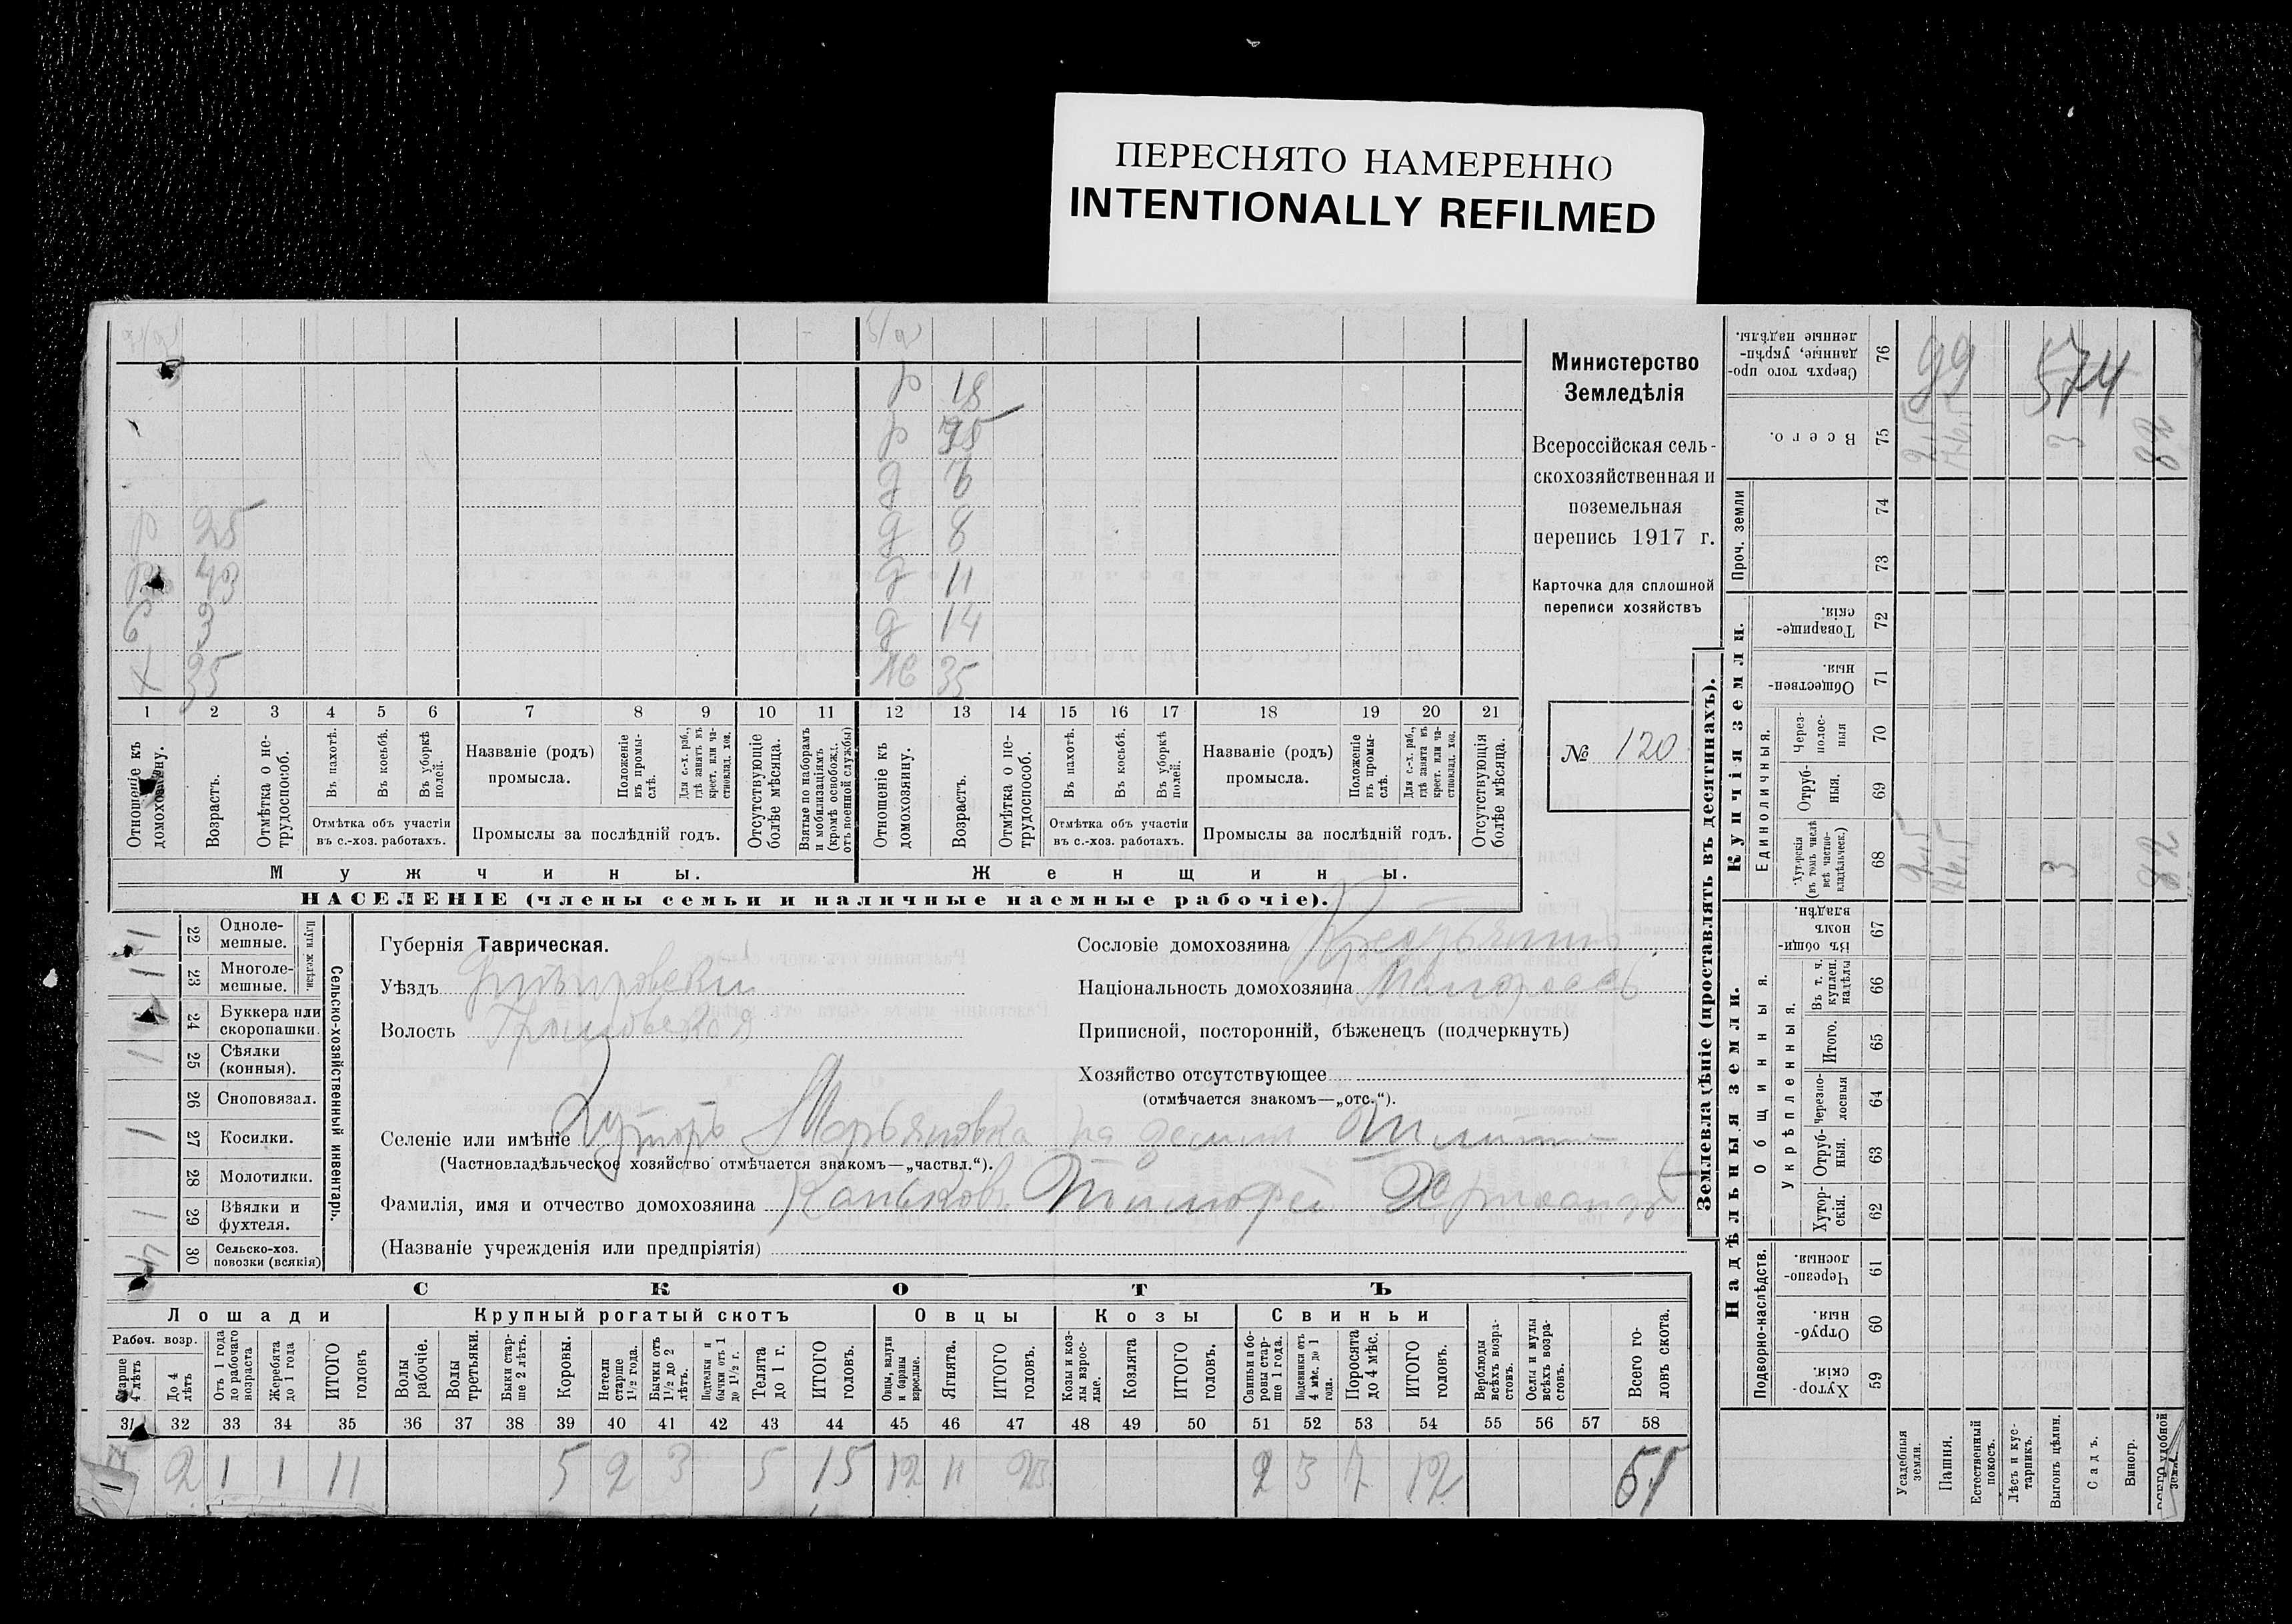 ПЕРЕСНЯТО НАМЕРЕННО
INTENTIONALLY REFILMED
Министерство
Земледѣлія
Всероссійская сель-
скохозяйственная и
поземельная
перепись 1917 г.
Карточка для сплошной
переписи хозяйствъ
№ 120
р 18
р
д
д 8
д 11
р 25 д 14
р 43
б 3
х 35 ж 35
1 2 3 4 5 6 7 8 9 10 11 12 13 14 15 16 17 18 19 20 21
Отношеніе къ домохозяину.
Возрастъ.
Отмѣтка о не-трудоспособ.
Въ пахотѣ.
Въ косьбѣ.
Въ уборкѣ полей.
Отмѣтка объ участіи
въ с.-хоз. работахъ.
Названіе (родъ)
промысла.
Положеніе въ промы-слѣ.
Для с.-х. раб., гдѣ занятъ въ крест. или ча-стновлад. хоз.
Промыслы за послѣдній годъ.
Отсутствующіе болѣе мѣсяца.
Взятые по наборамъ и мобилизаціямъ (кромѣ освобожд. отъ военной службы)
Отношеніе къ домохозяину.
Возрастъ.
Отмѣтка о не-трудоспособ.
Въ пахотѣ.
Въ косьбѣ.
Въ уборкѣ полей.
Отмѣтка объ участіи
въ с.-хоз. работахъ.
Названіе (родъ)
промысла.
Положеніе въ промы-слѣ.
Для с.-х. раб., гдѣ занята въ крест. или ча-стновлад. хоз.
Промыслы за послѣдній годъ.
Отсутствующія болѣе мѣсяца.
Мужчины. Женщины.
НАСЕЛЕНІЕ (члены семьи и наличные наемные рабочіе).
Сельско-хозяйственный инвентарь.
Плуги желѣзн.
1 22 Одноле-мешные.
1 23 Многоле-мешные.
24 Буккера или скоропашки.
1 25 Сѣялки (конныя).
26 Сноповязал.
1 27 Косилки.
28 Молотилки.
1 29 Вѣялки и фухтеля.
4 30 Сельско-хоз. повозки (всякія)
Губернія Таврическая.
Уѣздъ Днѣпровскій
Волость
Сословіе домохозяина
Національность домохозяина Малороссъ
Приписной, посторонній, бѣженецъ (подчеркнуть)
Хозяйство отсутствующее
(отмѣчается знакомъ—„отс.“).
Селеніе или имѣніе Хуторъ Марьяновка на земли
(Частновладѣльческое хозяйство отмѣчается знакомъ—„частвл.“).
Фамилія, имя и отчество домохозяина Каньковъ Тимофей
(Названіе учрежденія или предпріятія)
СКОТЪ
Лошади Крупный рогатый скотъ Овцы Козы Свиньи
Рабоч. возр.
Старше 4 лѣтъ
До 4 лѣтъ
Отъ 1 года до рабочаго возраста
Жеребята до 1 года
ИТОГО головъ
Волы рабочіе.
Волы третьяки.
Быки стар-ше 2 лѣтъ.
Коровы.
Нетели старше 1½ года.
Бычки отъ 1½ до 2 лѣтъ.
Подтелки и бычки отъ 1 до 1½ г.
Телята до 1 г.
ИТОГО головъ.
Овцы, валухи и бараны взрослые.
Ягнята.
ИТОГО головъ.
Козы и коз-лы взрос-лые.
Козлята
ИТОГО головъ.
Свиньи и бо-ровы стар-ше 1 года.
Подсвинки отъ 4 мѣс. до 1 года.
Поросята до 4 мѣс.
ИТОГО головъ.
Верблюды всѣхъ возра-стовъ.
Ослы и мулы всѣхъ возра-стовъ.
Всего го-ловъ скота.
31 32 33 34 35 36 37 38 39 40 41 42 43 44 45 46 47 48 49 50 51 52 53 54 55 56 57 58
2 1 1 11 5 2 3 5 15 12 11 23 2 3 7 12 61
Землевладѣніе (проставлять въ десятинахъ).
Надѣльныя земли. Купчія земли.
Подворно-наслѣдств. Общинныя. Укрѣпленныя. Единоличныя. Проч. земли
Хутор-скія. 59
Отруб-ныя. 60
Черезпо-лосныя. 61
Хутор-скія. 62
Отруб-ныя. 63
Черезпо-лосныя 64
Итого. 65
Въ т. ч. куплен. надѣлы 66
Въ общи-номъ владѣн. 67
Хуторскія (въ томъ числѣ всѣ частно-владѣльческ.) 68
Отруб-ныя. 69
Через-полос-ныя 70
Обществен-ныя. 71
Товарище-скія. 72
73
74
Всего. 75
Сверхъ того про-данные, укрѣп-ленные надѣлы. 76
Усадебныя земли.
Пашня.
Естественный покосъ.
Лѣсъ и кус-тарникъ.
Выгонъ цѣлин. 3 3
Садъ.
Виногр.
82 82
99
574